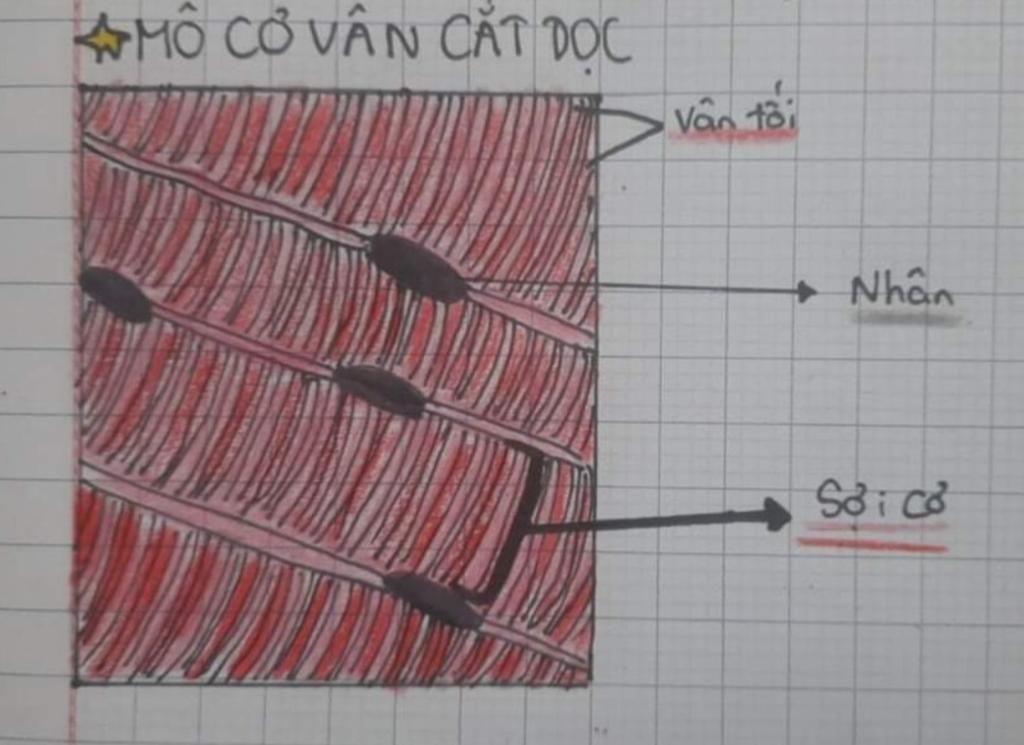 MÔ CƠ VÂN CẮT DỌC
Vân tối
Nhân
Sợi cơ